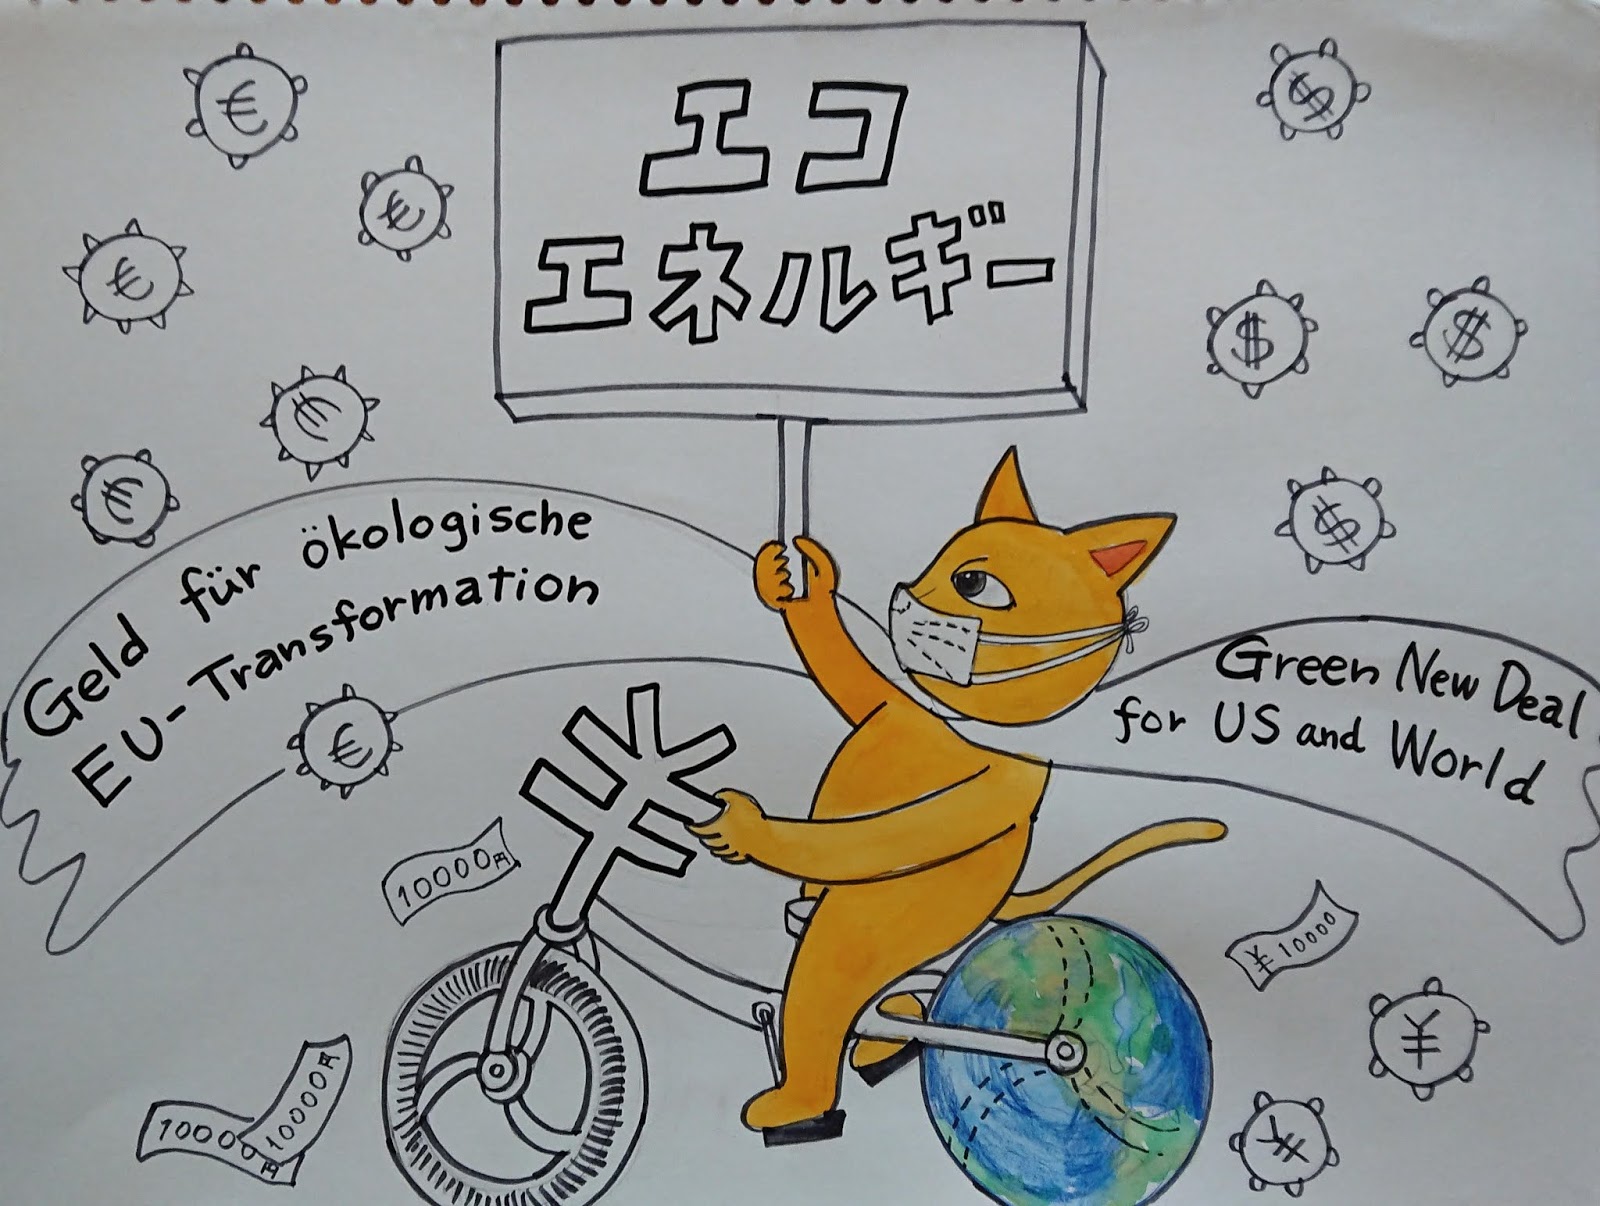 エコ
エネルギー
Geld für ökologische
EU-Transformation
Green New Deal
for US and World
€
€
€
€
€
€
$
$
$
$
¥
10000円
10000円
10000円
¥10000
¥
¥